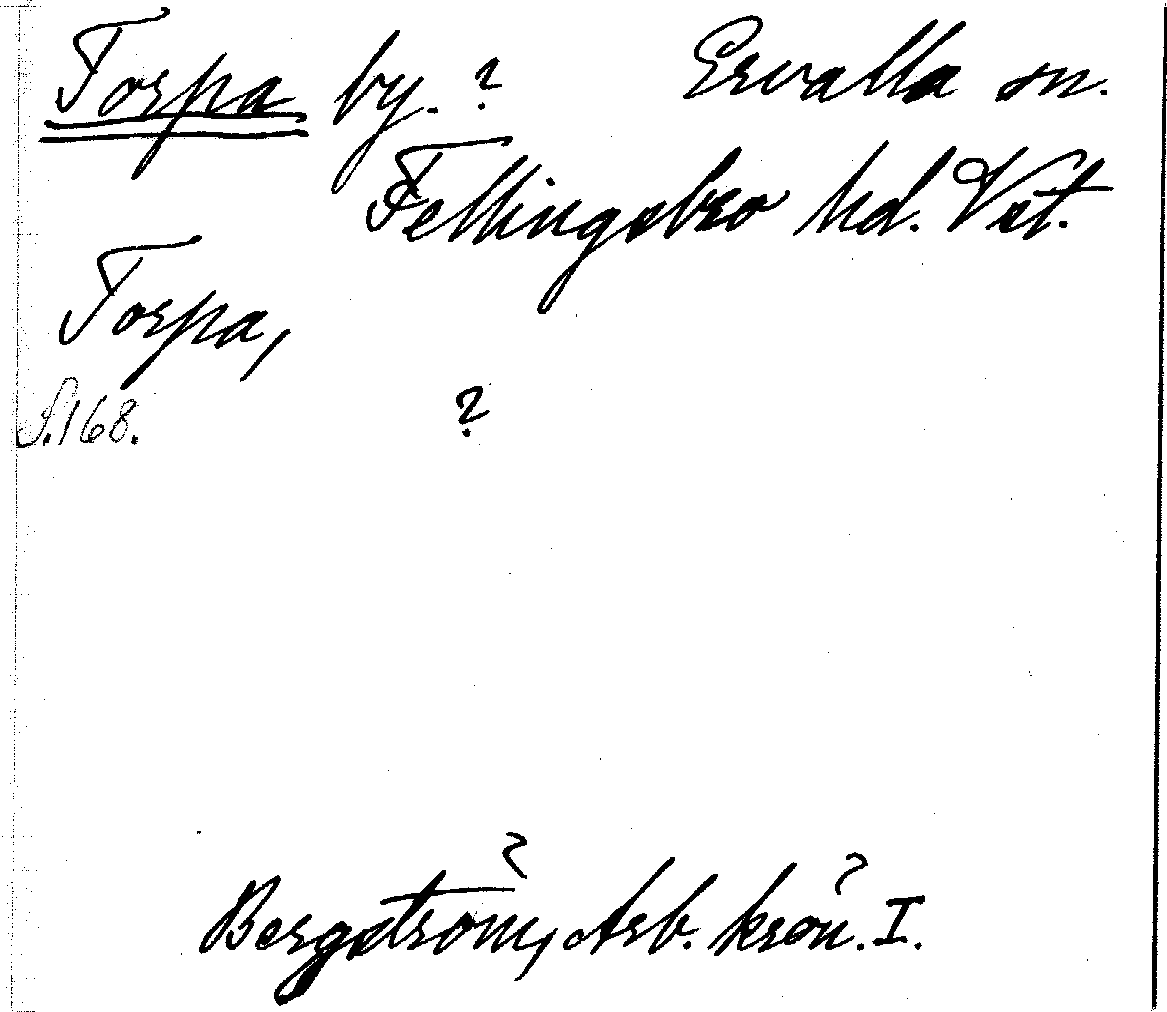 Torpa by. ? Ervalla sn.
Fellingsbro hd. Vst.
Torpa,
S. 168. ?
Bergström, Arb. krön. I.